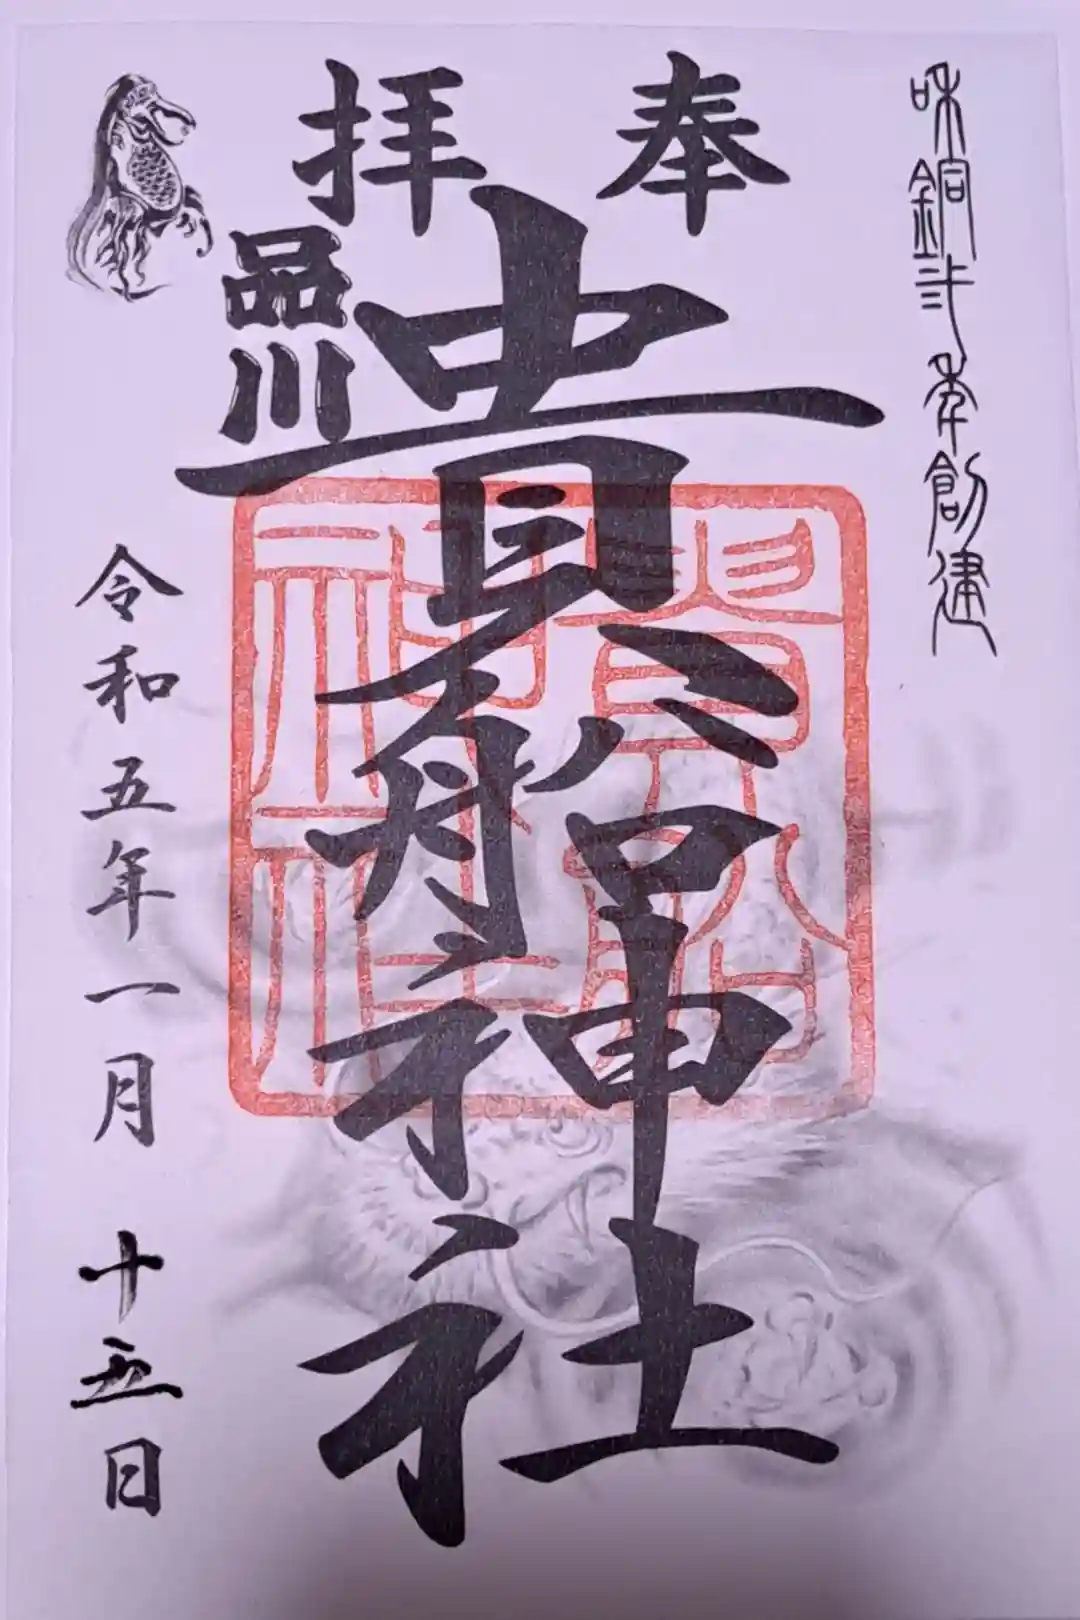 和銅弍年創建
奉拝
貴船神社
品川
令和五年一月十五日
貴船
神社